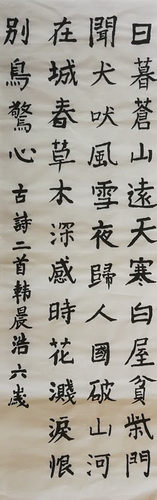 日暮蒼山遠天寒白屋貧柴門
聞犬吠風雪夜歸人國破山河
在城春草木深感時花濺淚恨
別鳥驚心古詩二首韩晨浩六歲